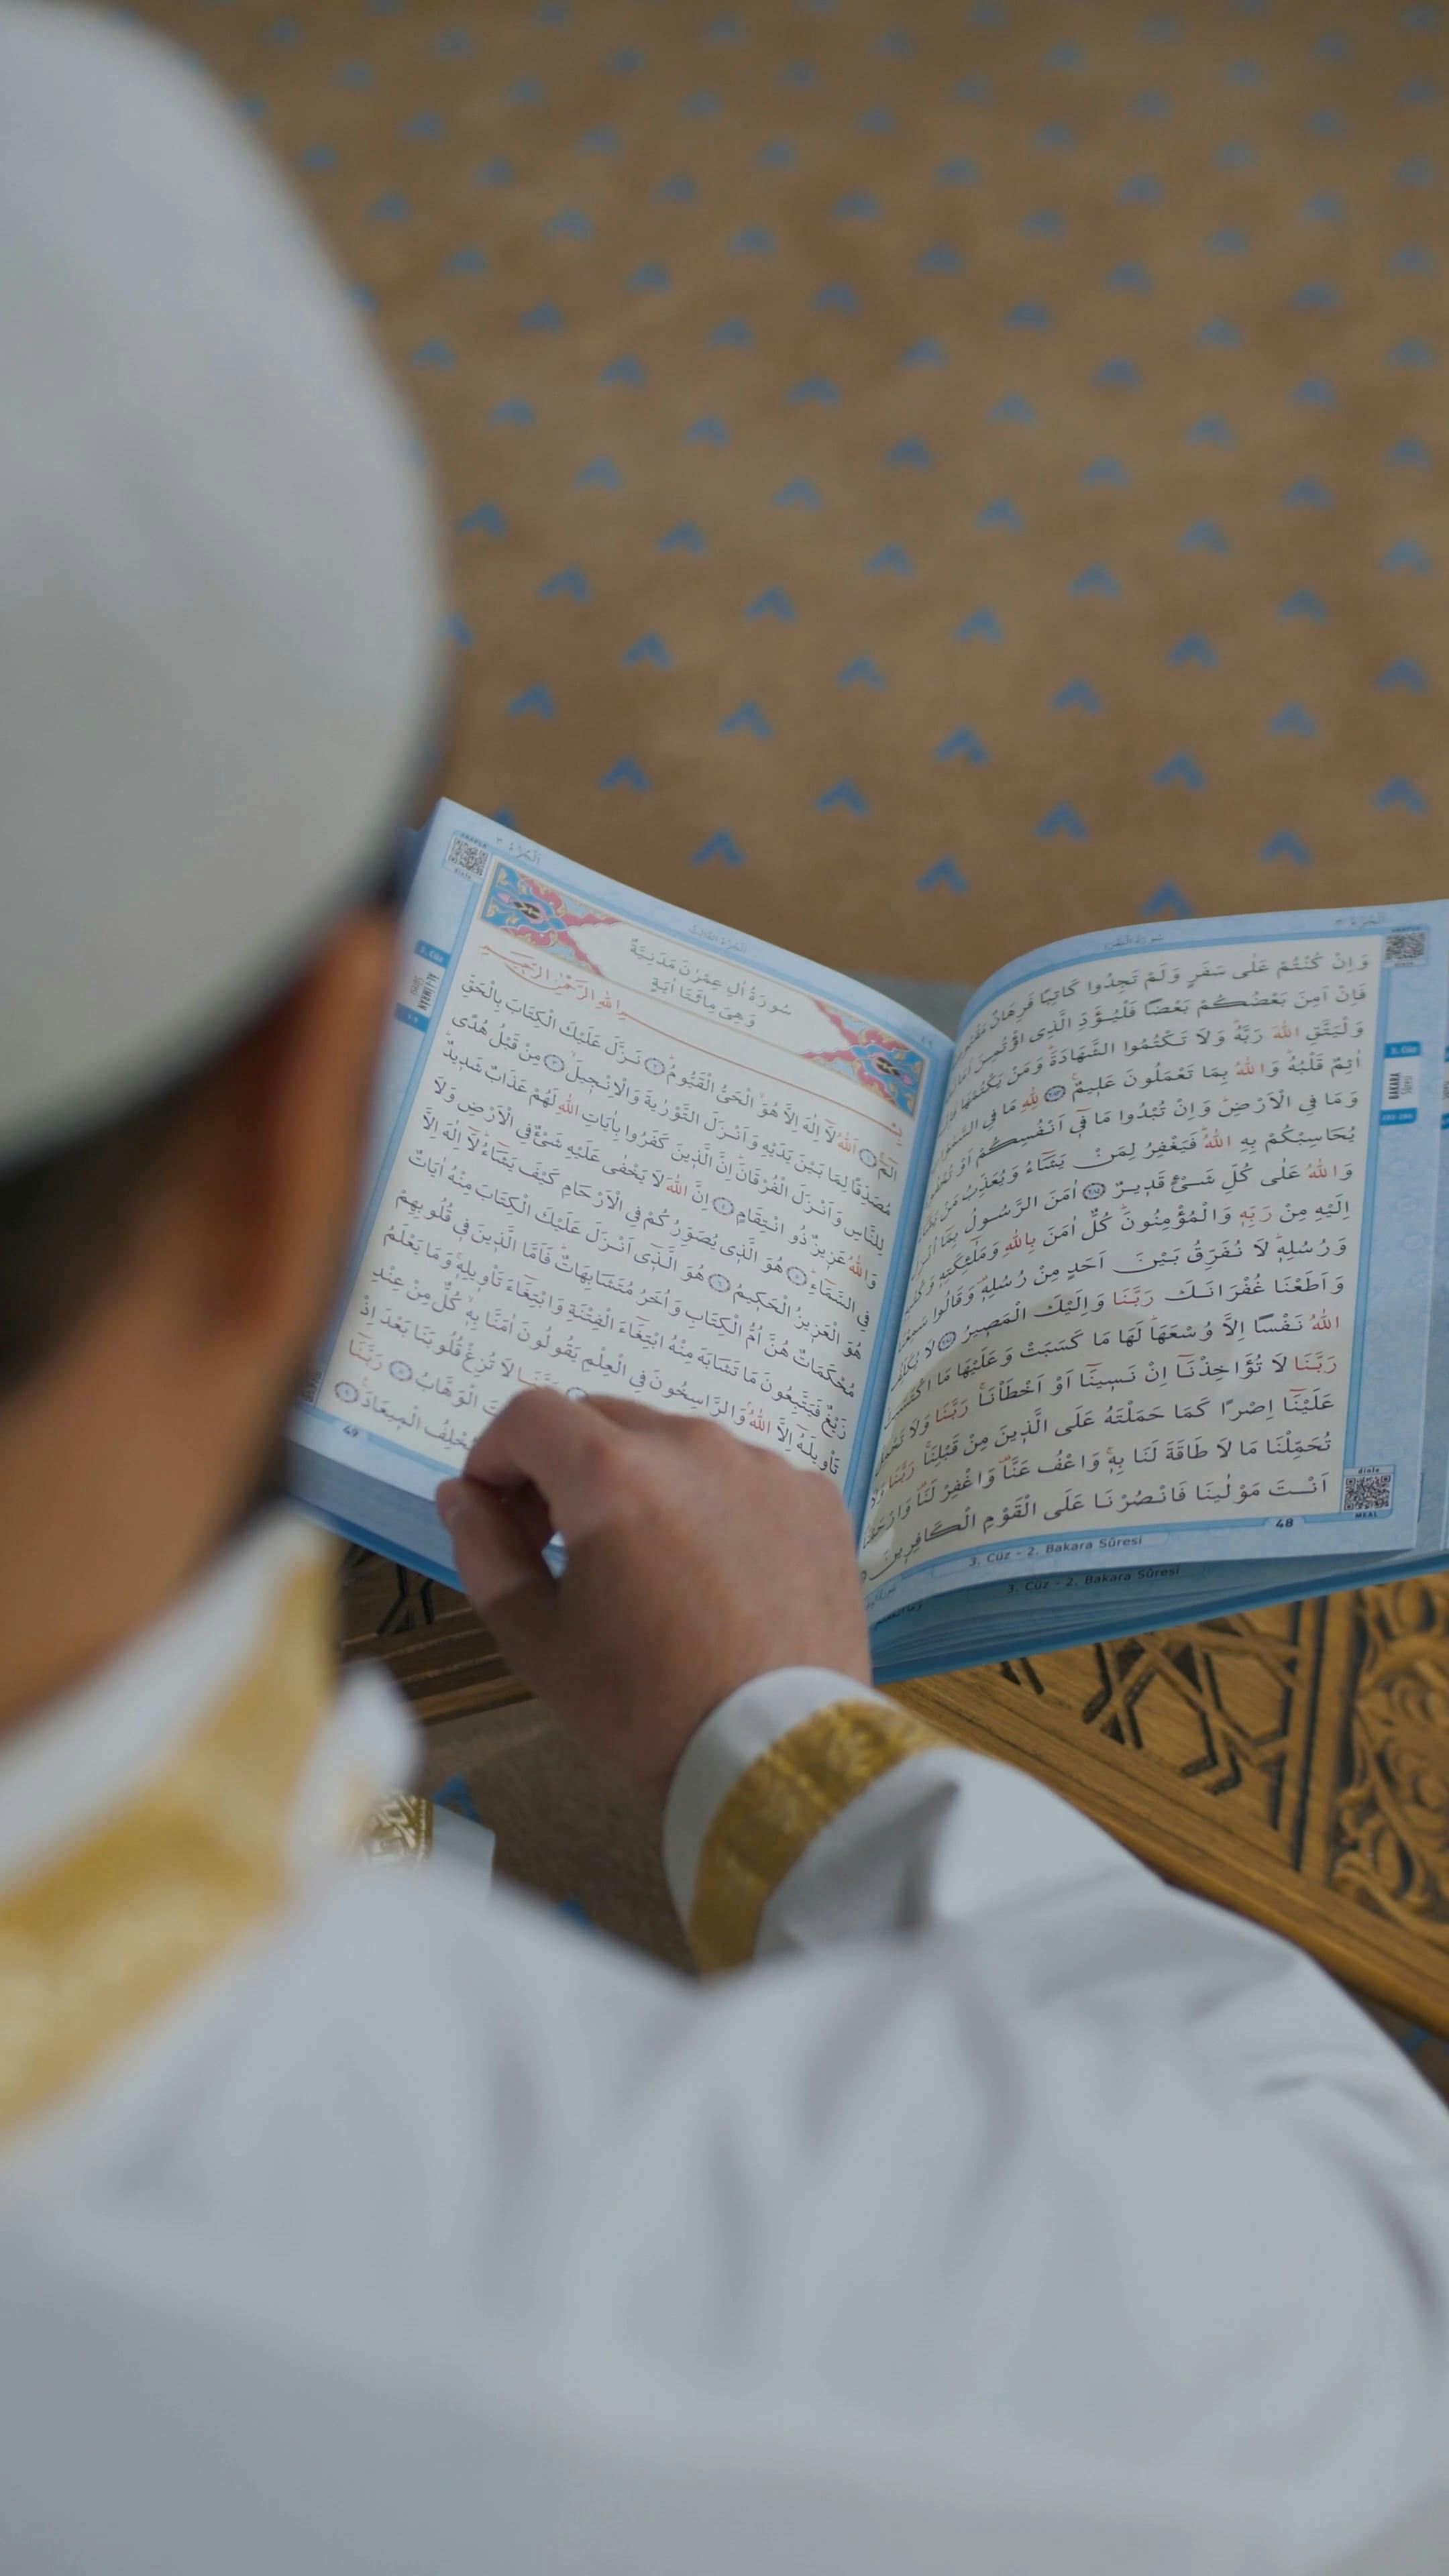 سُورَةُ الْبَقَرَةِ
اَلْجُزْءُ ٣
وَاِنْ كُنْتُمْ عَلٰى سَفَرٍ وَلَمْ تَجِدُوا كَاتِبًا فَرِهَانٌ
فَاِنْ اَمِنَ بَعْضُكُمْ بَعْضًا فَلْيُؤَدِّ الَّذِى اؤْتُمِنَ
وَلْيَتَّقِ اللّٰهَ رَبَّهُۜ وَلَا تَكْتُمُوا الشَّهَادَةَۜ وَمَنْ يَكْتُمْهَا
اٰثِمٌ قَلْبُهُۜ وَاللّٰهُ بِمَا تَعْمَلُونَ عَلِيمٌ ﴿٢٨٣﴾ لِلّٰهِ مَا فِى
وَمَا فِى الْاَرْضِۜ وَاِنْ تُبْدُوا مَا فٓى اَنْفُسِكُمْ اَوْ
يُحَاسِبْكُمْ بِهِ اللّٰهُۜ فَيَغْفِرُ لِمَنْ يَشَٓاءُ وَيُعَذِّبُ مَنْ
وَاللّٰهُ عَلٰى كُلِّ شَىْءٍ قَدِيرٌ ﴿٢٨٤﴾ اٰمَنَ الرَّسُولُ بِمَٓا
اِلَيْهِ مِنْ رَبِّهِ وَالْمُؤْمِنُونَۜ كُلٌّ اٰمَنَ بِاللّٰهِ وَمَلٰٓئِكَتِهِ
وَرُسُلِهِۜ لَا نُفَرِّقُ بَيْنَ اَحَدٍ مِنْ رُسُلِهِ وَقَالُوا سَمِعْنَا
وَاَطَعْنَا غُفْرَانَكَ رَبَّنَا وَاِلَيْكَ الْمَصِيرُ ﴿٢٨٥﴾ لَا يُكَلِّفُ
اللّٰهُ نَفْسًا اِلَّا وُسْعَهَاۜ لَهَا مَا كَسَبَتْ وَعَلَيْهَا مَا اكْتَسَبَتْۜ
رَبَّنَا لَا تُؤَاخِذْنَٓا اِنْ نَسِينَٓا اَوْ اَخْطَاْنَاۚ رَبَّنَا وَلَا تَحْمِلْ
عَلَيْنَٓا اِصْرًا كَمَا حَمَلْتَهُ عَلَى الَّذِينَ مِنْ قَبْلِنَاۚ رَبَّنَا وَلَا
تُحَمِّلْنَا مَا لَا طَاقَةَ لَنَا بِهِۚ وَاعْفُ عَنَّا۠ وَاغْفِرْ لَنَا۠ وَارْحَمْنَا۠
اَنْتَ مَوْلٰينَا فَانْصُرْنَا عَلَى الْقَوْمِ الْكَافِرِينَ
3. Cüz
BAKARA
Sûresi
283-286
dinle
MEAL
48
3. Cüz - 2. Bakara Sûresi
3. Cüz - 2. Bakara Sûresi
اَلْجُزْءُ ٣
سُورَةُ اٰلِ عِمْرٰنَ مَدَنِيَّةٌ
وَهِىَ مِائَتَا اٰيَةٍ
بِسْمِ اللّٰهِ الرَّحْمٰنِ الرَّحِيمِ
الٓمٓ ﴿١﴾ اَللّٰهُ لَٓا اِلٰهَ اِلَّا هُوَۙ الْحَىُّ الْقَيُّومُۜ ﴿٢﴾ نَزَّلَ عَلَيْكَ الْكِتَابَ بِالْحَقِّ
مُصَدِّقًا لِمَا بَيْنَ يَدَيْهِ وَاَنْزَلَ التَّوْرٰيةَ وَالْاِنْجِيلَۙ ﴿٣﴾ مِنْ قَبْلُ هُدًى
لِلنَّاسِ وَاَنْزَلَ الْفُرْقَانَۜ اِنَّ الَّذِينَ كَفَرُوا بِاٰيَاتِ اللّٰهِ لَهُمْ عَذَابٌ شَدِيدٌۜ
وَاللّٰهُ عَزِيزٌ ذُو انْتِقَامٍ ﴿٤﴾ اِنَّ اللّٰهَ لَا يَخْفٰى عَلَيْهِ شَىْءٌ فِى الْاَرْضِ وَلَا
فِى السَّمَٓاءِۜ ﴿٥﴾ هُوَ الَّذِى يُصَوِّرُكُمْ فِى الْاَرْحَامِ كَيْفَ يَشَٓاءُۜ لَٓا اِلٰهَ اِلَّا
هُوَ الْعَزِيزُ الْحَكِيمُ ﴿٦﴾ هُوَ الَّذٓى اَنْزَلَ عَلَيْكَ الْكِتَابَ مِنْهُ اٰيَاتٌ
مُحْكَمَاتٌ هُنَّ اُمُّ الْكِتَابِ وَاُخَرُ مُتَشَابِهَاتٌۜ فَاَمَّا الَّذِينَ فِى قُلُوبِهِمْ
زَيْغٌ فَيَتَّبِعُونَ مَا تَشَابَهَ مِنْهُ ابْتِغَٓاءَ الْفِتْنَةِ وَابْتِغَٓاءَ تَاْوِيلِهِۚ وَمَا يَعْلَمُ
تَاْوِيلَهُٓ اِلَّا اللّٰهُۢ وَالرَّاسِخُونَ فِى الْعِلْمِ يَقُولُونَ اٰمَنَّا بِهِۙ كُلٌّ مِنْ عِنْدِ
لَا تُزِغْ قُلُوبَنَا بَعْدَ اِذْ
الْوَهَّابُ ﴿٨﴾ رَبَّنَٓا
يُخْلِفُ الْمِيعَادَ۟ ﴿٩﴾
3. Cüz
49